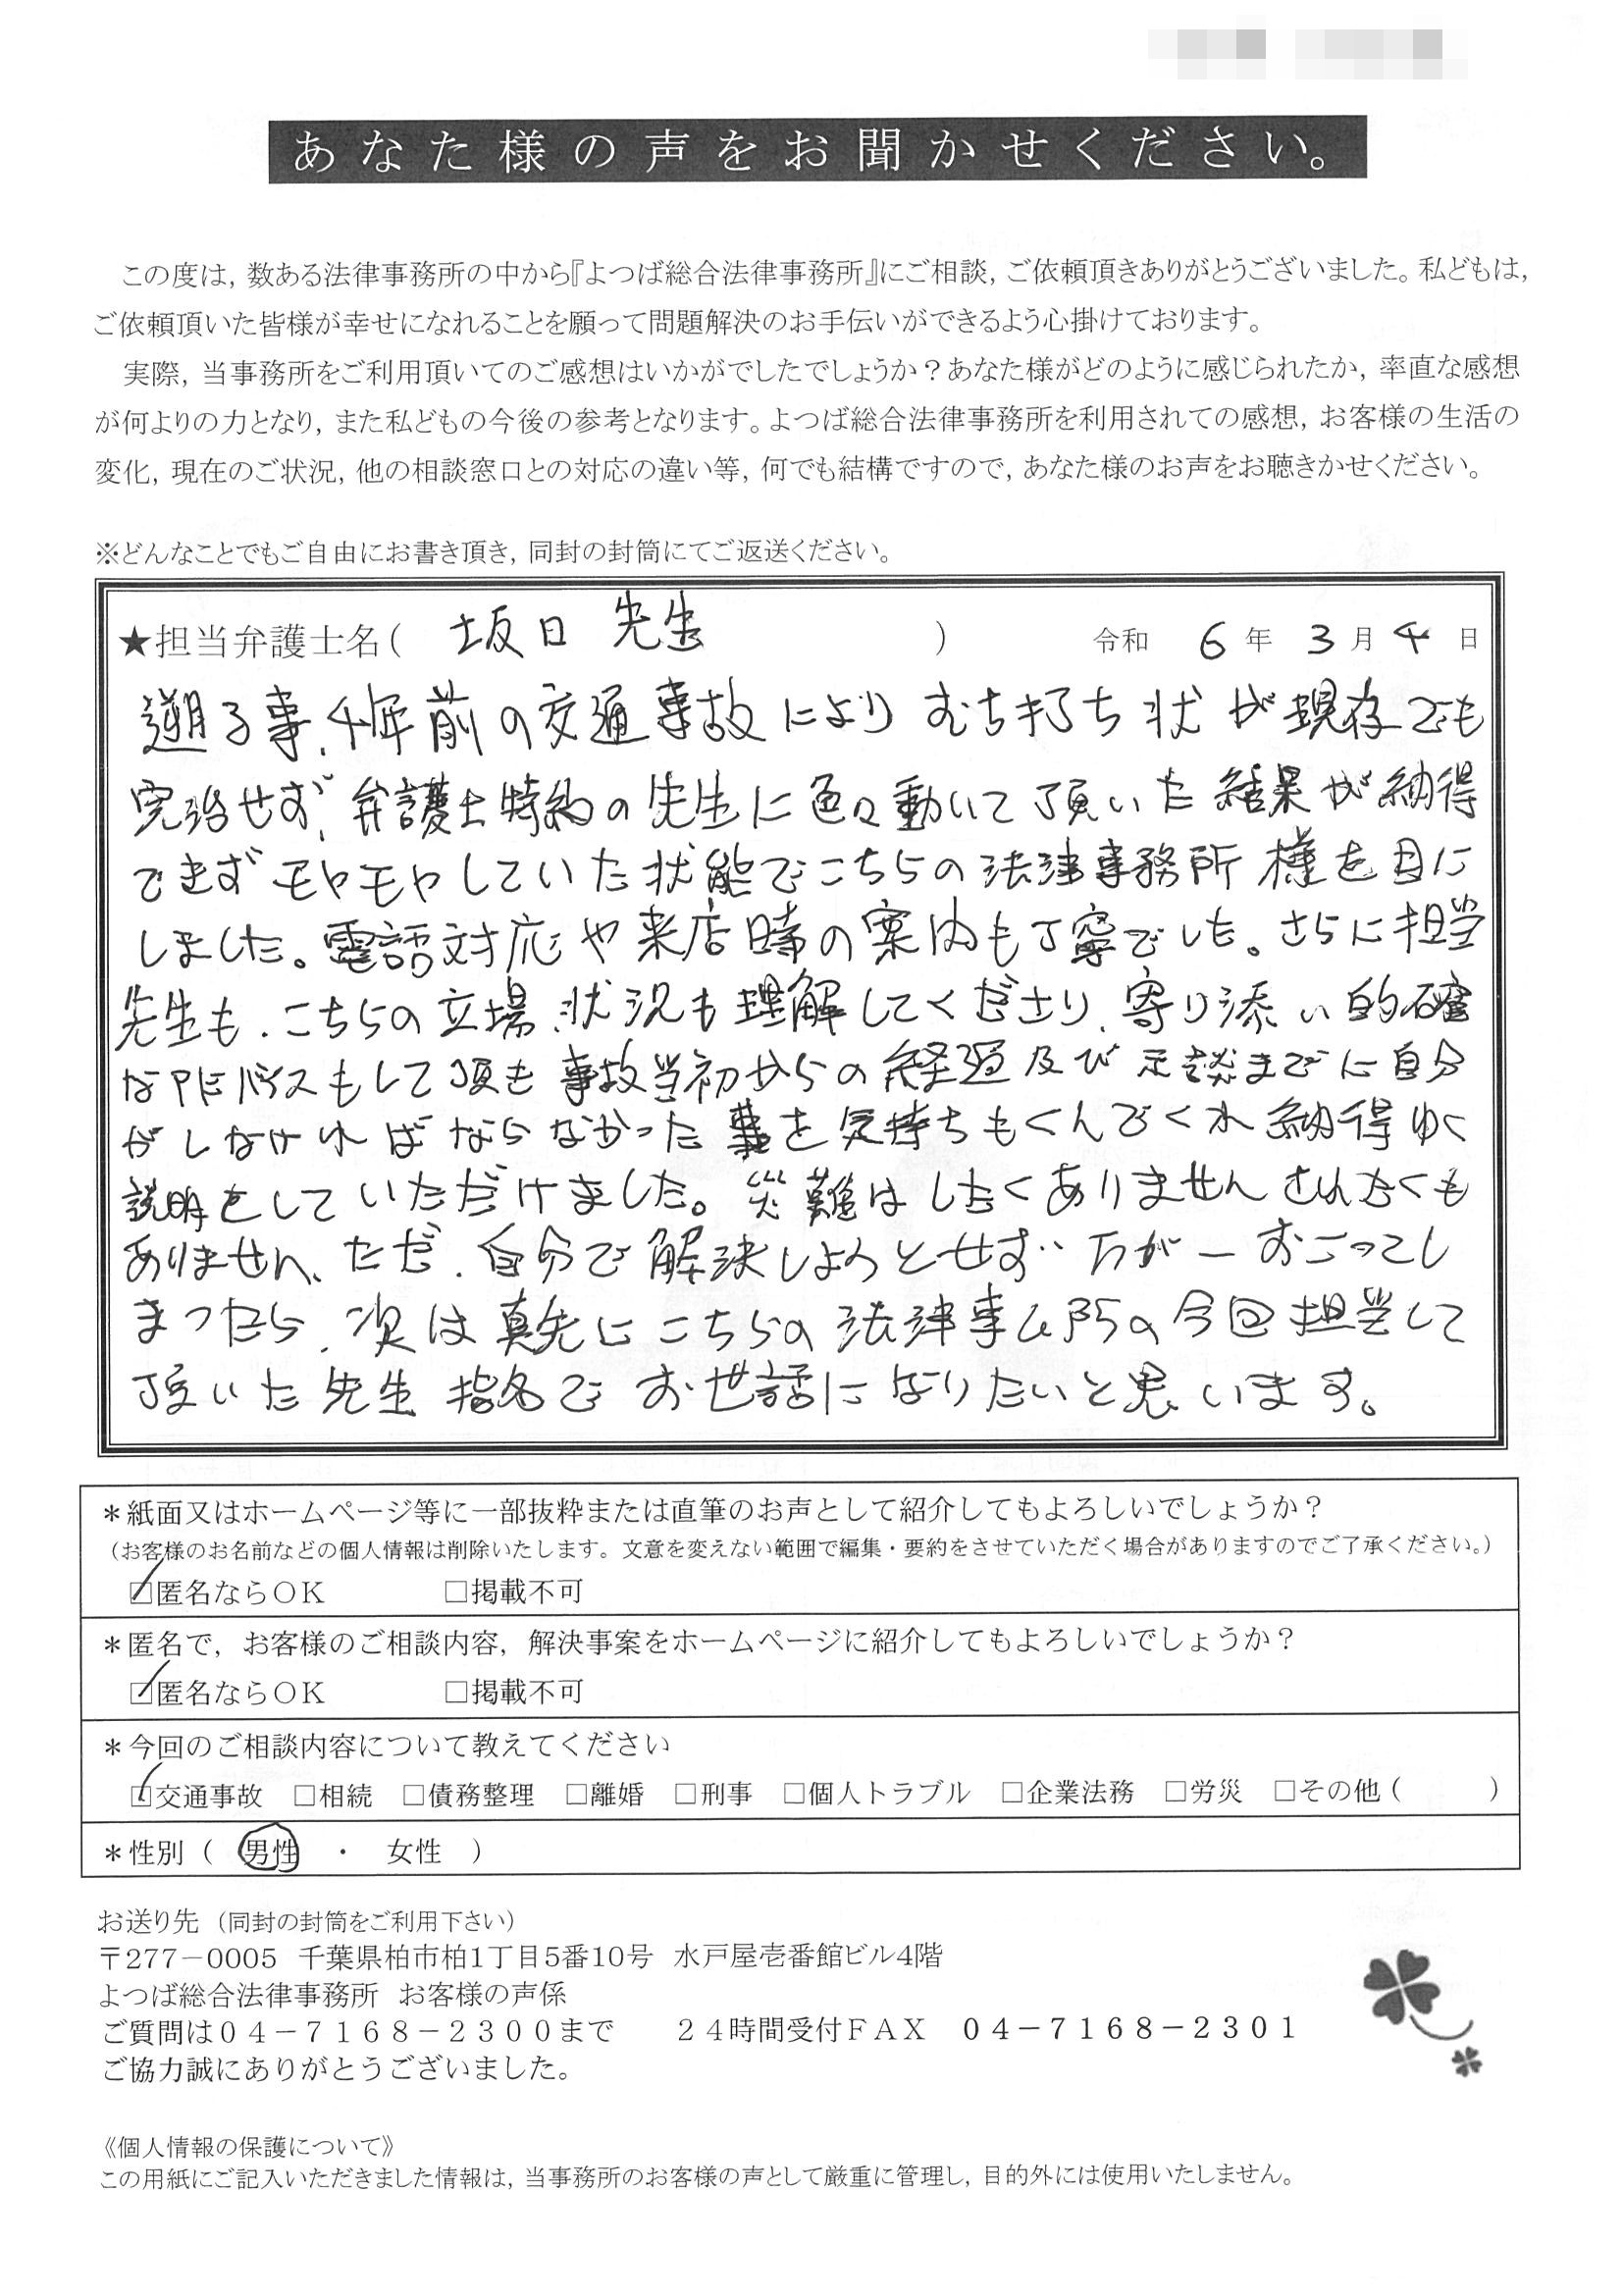 あなた様の声をお聞かせください。
この度は，数ある法律事務所の中から『よつば総合法律事務所』にご相談，ご依頼頂きありがとうございました。私どもは，
ご依頼頂いた皆様が幸せになれることを願って問題解決のお手伝いができるよう心掛けております。
実際，当事務所をご利用頂いてのご感想はいかがでしたでしょうか？あなた様がどのように感じられたか，率直な感想
が何よりの力となり，また私どもの今後の参考となります。よつば総合法律事務所を利用されての感想，お客様の生活の
変化，現在のご状況，他の相談窓口との対応の違い等，何でも結構ですので，あなた様のお声をお聴きかせください。
※どんなことでもご自由にお書き頂き，同封の封筒にてご返送ください。
★担当弁護士名( 坂口 先生 ) 令和 6 年 3 月 4 日
遡る事、4年前の交通事故により むち打ち状が現存でも
完治せず、弁護士特約の先生に色々動いて頂いた結果が納得
できずモヤモヤしていた状態でこちらの法津事務所様を目に
しました。電話対応や来店時の案内も丁寧でした。さらに担当
先生も、こちらの立場、状況も理解してくださり、寄り添い的確
なアドバイスもして頂き 事故当初からの経過及び示談までに自分
がしなければならなかった事を気持ちもくんでくれ納得ゆく
説明をしていただけました。災難はしたくありません されたくも
ありません、ただ、自分で解決しようとせず 万が一おこってし
まったら、次は真先にこちらの法津事ム所の今回担当して
頂いた先生指名でお世話になりたいと思います。
＊紙面又はホームページ等に一部抜粋または直筆のお声として紹介してもよろしいでしょうか？
（お客様のお名前などの個人情報は削除いたします。文意を変えない範囲で編集・要約をさせていただく場合がありますのでご了承ください。）
☑匿名ならＯＫ □掲載不可
＊匿名で，お客様のご相談内容，解決事案をホームページに紹介してもよろしいでしょうか？
☑匿名ならＯＫ □掲載不可
＊今回のご相談内容について教えてください
☑交通事故 □相続 □債務整理 □離婚 □刑事 □個人トラブル □企業法務 □労災 □その他（ ）
＊性別（ 男性 ・ 女性 ）
お送り先（同封の封筒をご利用下さい）
〒277－0005 千葉県柏市柏1丁目5番10号 水戸屋壱番館ビル4階
よつば総合法律事務所 お客様の声係
ご質問は０４－７１６８－２３００まで ２４時間受付ＦＡＸ ０４－７１６８－２３０１
ご協力誠にありがとうございました。
《個人情報の保護について》
この用紙にご記入いただきました情報は，当事務所のお客様の声として厳重に管理し，目的外には使用いたしません。